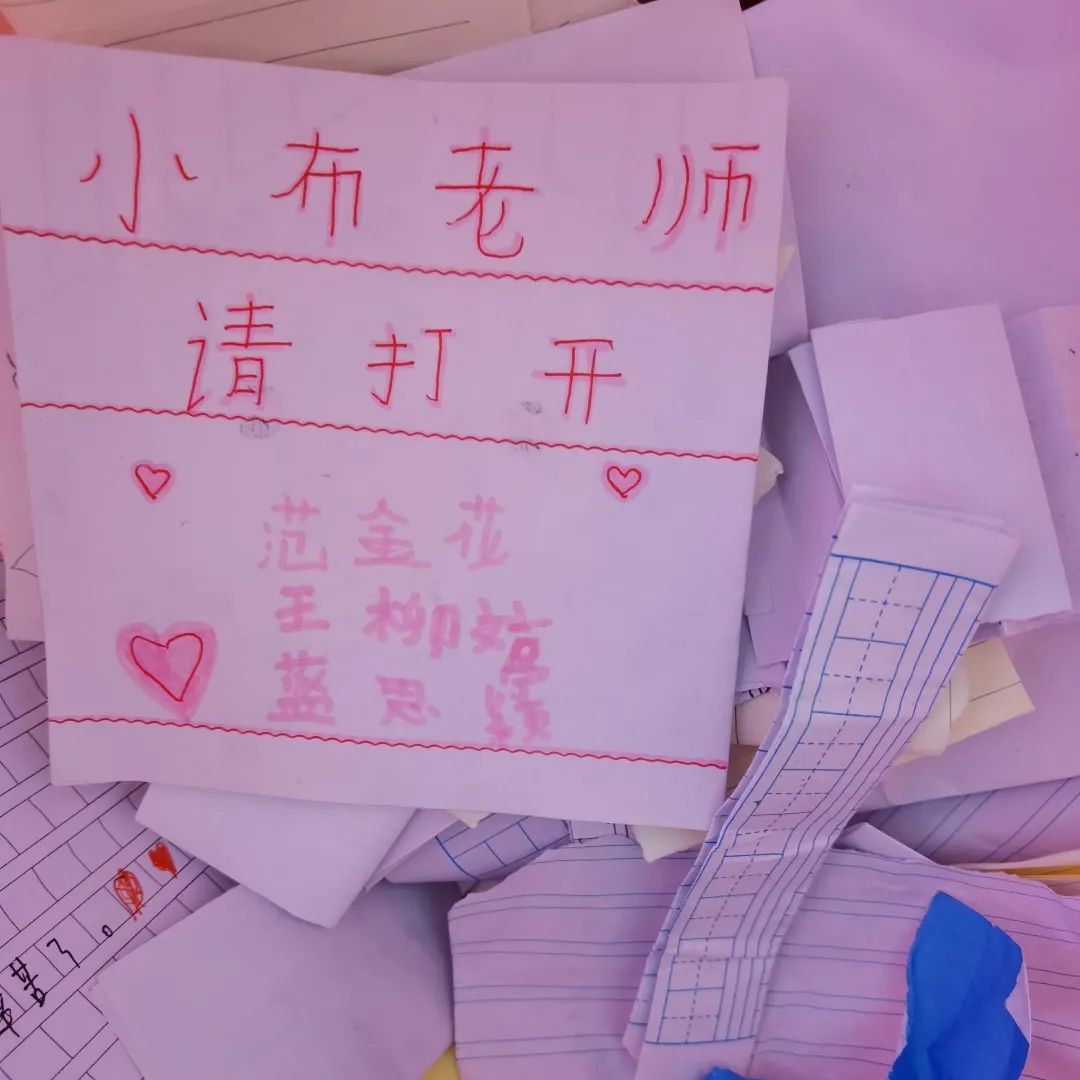 小布老师
请打开
范金花
王柳婷
蓝思颖
辛苦了。